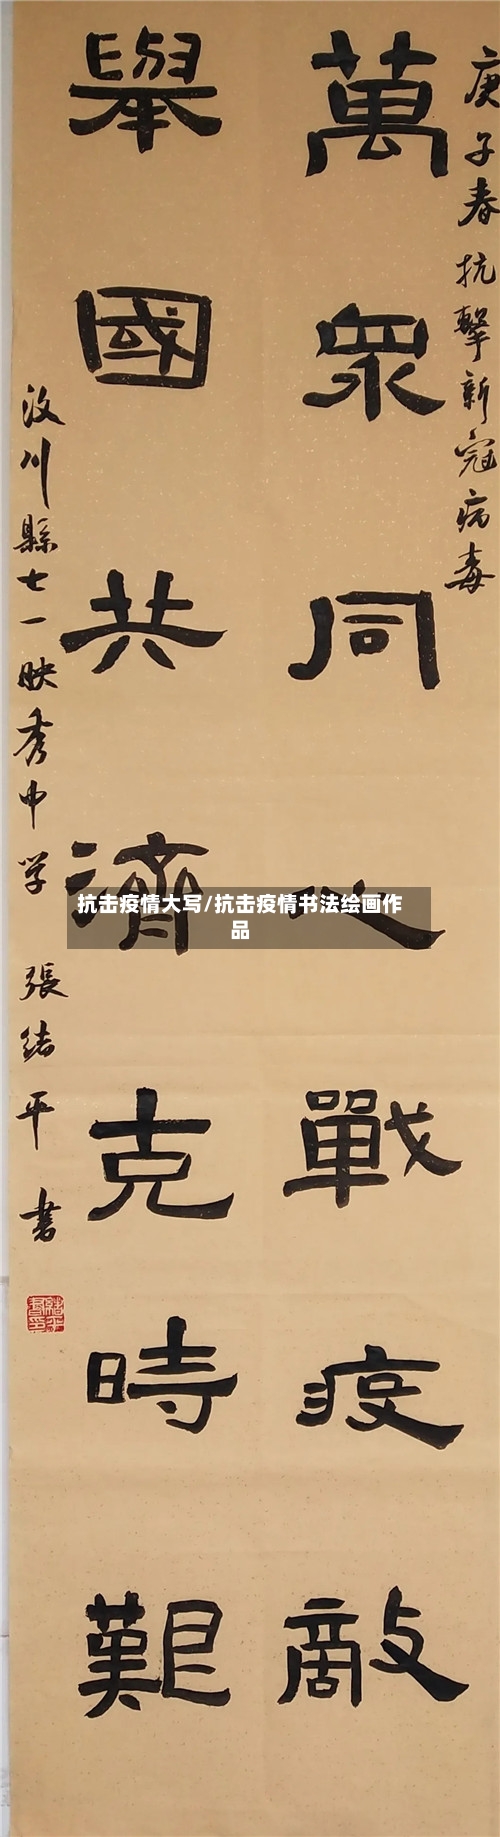 庚子春抗擊新冠病毒
萬衆同心戰疫敵
舉國共濟克時艱
汶川縣七一映秀中学 張緒平 書
抗击疫情大写/抗击疫情书法绘画作
品